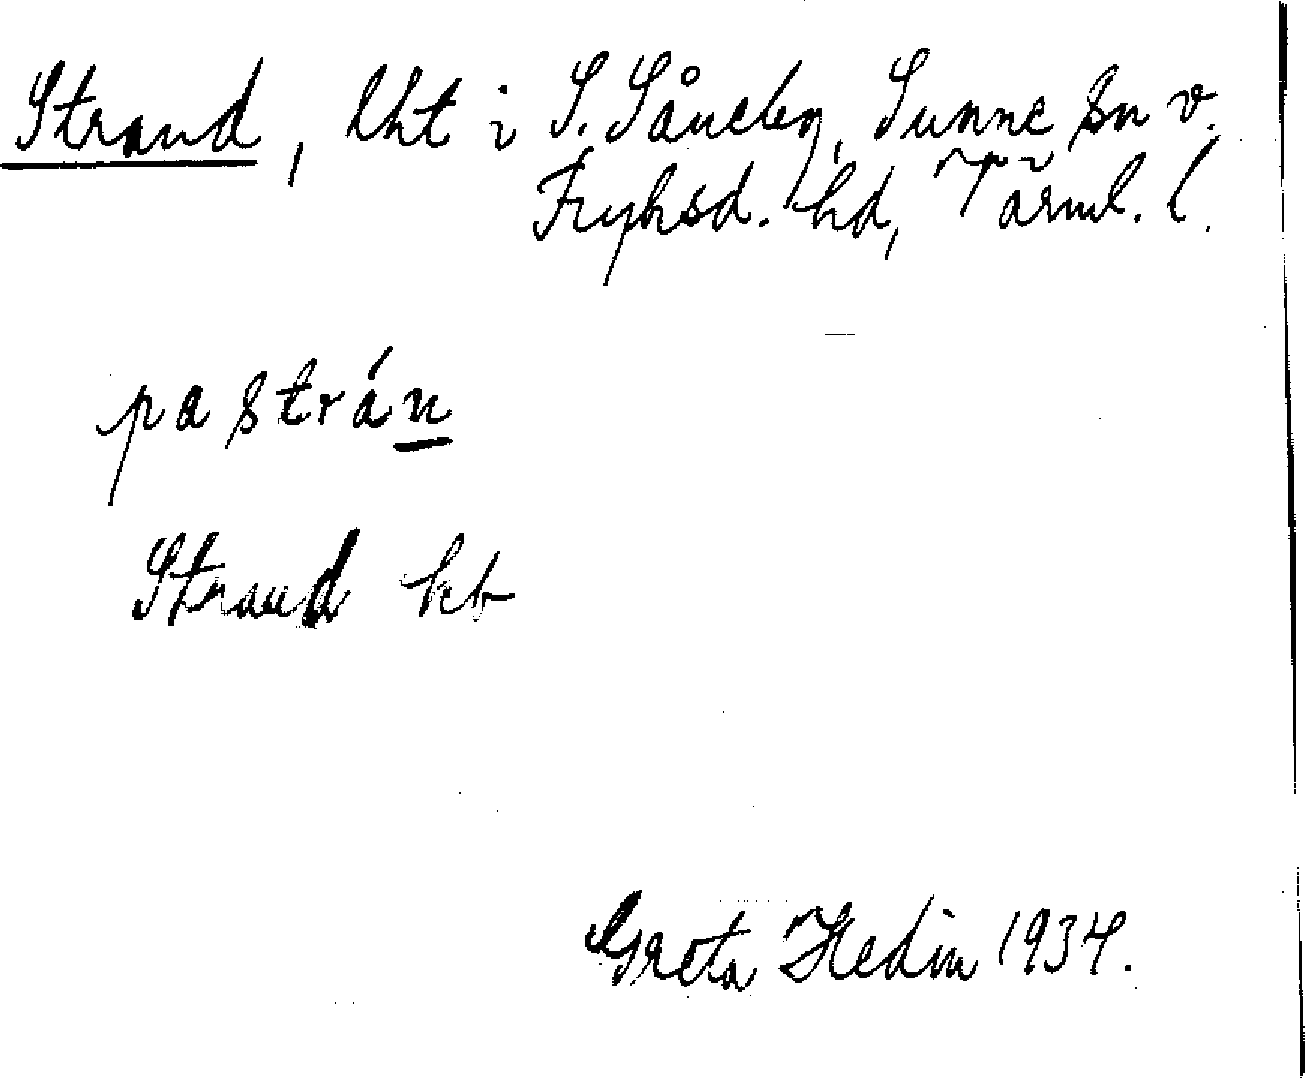 Strand, lht i S. Såneby, Sunne sn v.
Fryksd. hd, Värml. l.
pa strán
Strand kb
Greta Hedin 1934.